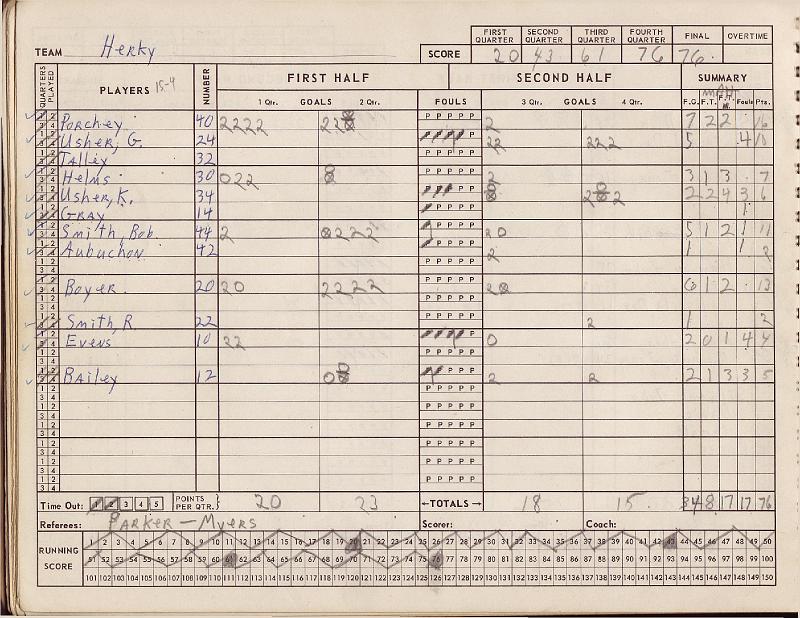 TEAM Herky
FIRST QUARTER SECOND QUARTER THIRD QUARTER FOURTH QUARTER FINAL OVERTIME
SCORE 20 43 61 76 76.
QUARTERS PLAYED PLAYERS 15-9 NUMBER FIRST HALF SECOND HALF SUMMARY
1 Qtr. GOALS 2 Qtr. FOULS 3 Qtr. GOALS 4 Qtr. F.G. F.T. F.T. M. Fouls Pts.
Porchey 40 2222 2 7 2 2 16
Usher, G. 24 22 222 5 4 10
Talley 32
Helms 30 022 2 3 1 3 7
Usher, K. 34 2 2 4 3 6
Gray 14 1
Smith, Bob. 44 2 20 5 1 2 1 11
Aubuchon 42 2 1 1 2
Boyer 20 20 2222 6 1 2 13
Smith, R 22 2 1 2
Evens 10 22 0 2 0 1 4 4
Bailey 12 2 2 2 1 3 3 5
P P P P P
Time Out: 1 2 3 4 5 POINTS PER QTR. 20 23 ←TOTALS→ 18 15 34 8 17 17 76
Referees: Parker — Myers Scorer: Coach:
RUNNING SCORE
1 2 3 4 5 6 7 8 9 10 11 12 13 14 15 16 17 18 19 20 21 22 23 24 25 26 27 28 29 30 31 32 33 34 35 36 37 38 39 40 41 42 43 44 45 46 47 48 49 50
51 52 53 54 55 56 57 58 59 60 61 62 63 64 65 66 67 68 69 70 71 72 73 74 75 76 77 78 79 80 81 82 83 84 85 86 87 88 89 90 91 92 93 94 95 96 97 98 99 100
101 102 103 104 105 106 107 108 109 110 111 112 113 114 115 116 117 118 119 120 121 122 123 124 125 126 127 128 129 130 131 132 133 134 135 136 137 138 139 140 141 142 143 144 145 146 147 148 149 150